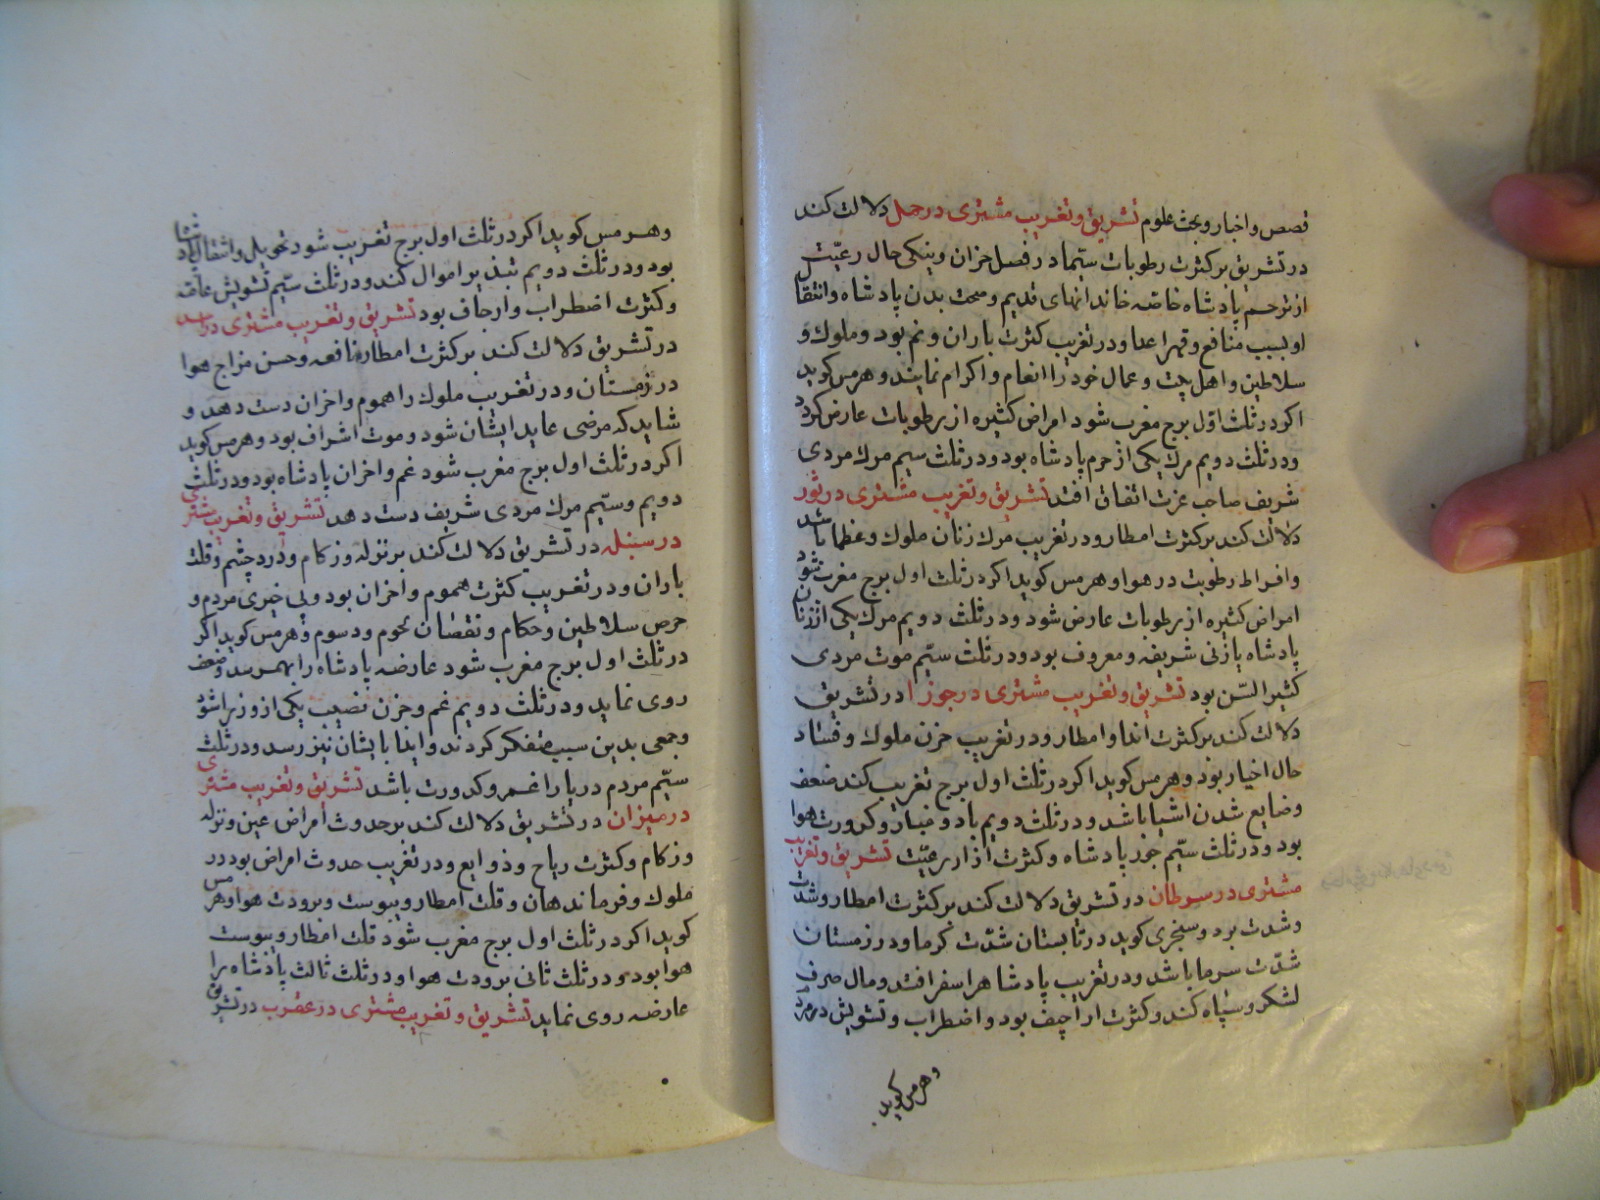 قصص و اخبار و بحث علوم تشریق و تغریب مشتری در حمل دلالت کند
در تشریق بر کثرت رطوبات سیّما در فصل خزان و نیکی حال رعیّت
از ترحم پادشاه خاصه خاندانهای قدیم و صحت بدن پادشاه و انتقا
او بسبب منافع و قهر اعدا و در تغریب کثرت باران و نم بود و ملوک و
سلاطین و اهل بیت و عمال خود را انعام و اکرام نمایند و هرمس کوید
اکر در ثلث اوّل برج مغرب شود امراض کثیره از رطوبات عارض کردد
و در ثلث دویم مرک یکی از حرم پادشاه بود و در ثلث سیم مرک مردی
شریف صاحب عزت اتفاق افتد تشریق و تغریب مشتری در ثور
دلالت کند بر کثرت امطار و در تغریب مرک زنان ملوک و عظما باشد
و افراط رطوبت در هوا و هرمس کوید اکر در ثلث اول برج مغرب شود
امراض کثیره از رطوبات عارض شود و در ثلث دویم مرک یکی از زنان
پادشاه یا زنی شریفه و معروف بود و در ثلث سیّم موت مردی
کثیر السّن بود تشریق و تغریب مشتری در جوزا در تشریق
دلالت کند بر کثرت اندا و امطار و در تغریب حزن ملوک و فساد
حال اخیار بود و هرمس کوید اکر در ثلث اول برج تغریب کند ضعف
و ضایع شدن اشیا باشد و در ثلث دویم باد و غبار و کدورت هوا
بود و در ثلث سیّم جور پادشاه و کثرت آزار رعیّت تشریق و تغریب
مشتری در سرطان در تشریق دلالت کند بر کثرت امطار و شدت
و شدت برد و سنجری کوید در تابستان شدّت کرما و در زمستان
شدّت سرما باشد و در تغریب پادشاه را سفر افتد و مال صرف
لشکر و سپاه کند و کثرت اراجیف بود و اضطراب و تشویش در مردم
و هرمس کوید
و هرمس کوید اکر در ثلث اول برج تغریب شود تحویل و انتقال پادشا
بود و در ثلث دویم تبذیر اموال کند و در ثلث سیّم تشویش عامّه
و کثرت اضطراب و ارجاف بود تشریق و تغریب مشتری در اسد
در تشریق دلالت کند بر کثرت امطار نافعه و حسن مزاج هوا
در زمستان و در تغریب ملوک را هموم و احزان دست دهد و
شاید که مرضی عاید ایشان شود و موت اشراف بود و هرمس کوید
اکر در ثلث اول برج مغرب شود غم و احزان پادشاه بود و در ثلث
دویم و سیّم مرک مردی شریف دست دهد تشریق و تغریب مشتری
در سنبله در تشریق دلالت کند بر نزله و زکام و درد چشم و قلت
باران و در تغریب کثرت هموم و احزان بود و بی خیری مردم و
حرص سلاطین و حکام و نقصان نجوم و دسوم و هرمس کوید اکر
در ثلث اول برج مغرب شود عارضه پادشاه را بهم رسد و ضعف
روی نماید و در ثلث دویم غم و حزن نصیب یکی از وزرا شود
و جمعی بدین سبب متفکر کردند و ایذا بایشان نیز رسد و در ثلث
سیّم مردم دریا را غم و کدورت باشد تشریق و تغریب مشتری
در میزان در تشریق دلالت کند بر حدوث امراض عین و نزله
و زکام و کثرت ریاح و ذوابع و در تغریب حدوث امراض بود در
ملوک و فرماندهان و قلت امطار و یبوست و برودت هوا و هرمس
کوید اکر در ثلث اول برج مغرب شود قلت امطار و یبوست
هوا بود و در ثلث ثانی برودت هوا و در ثلث ثالث پادشاه را
عارضه روی نماید تشریق و تغریب مشتری در عقرب در تشریق